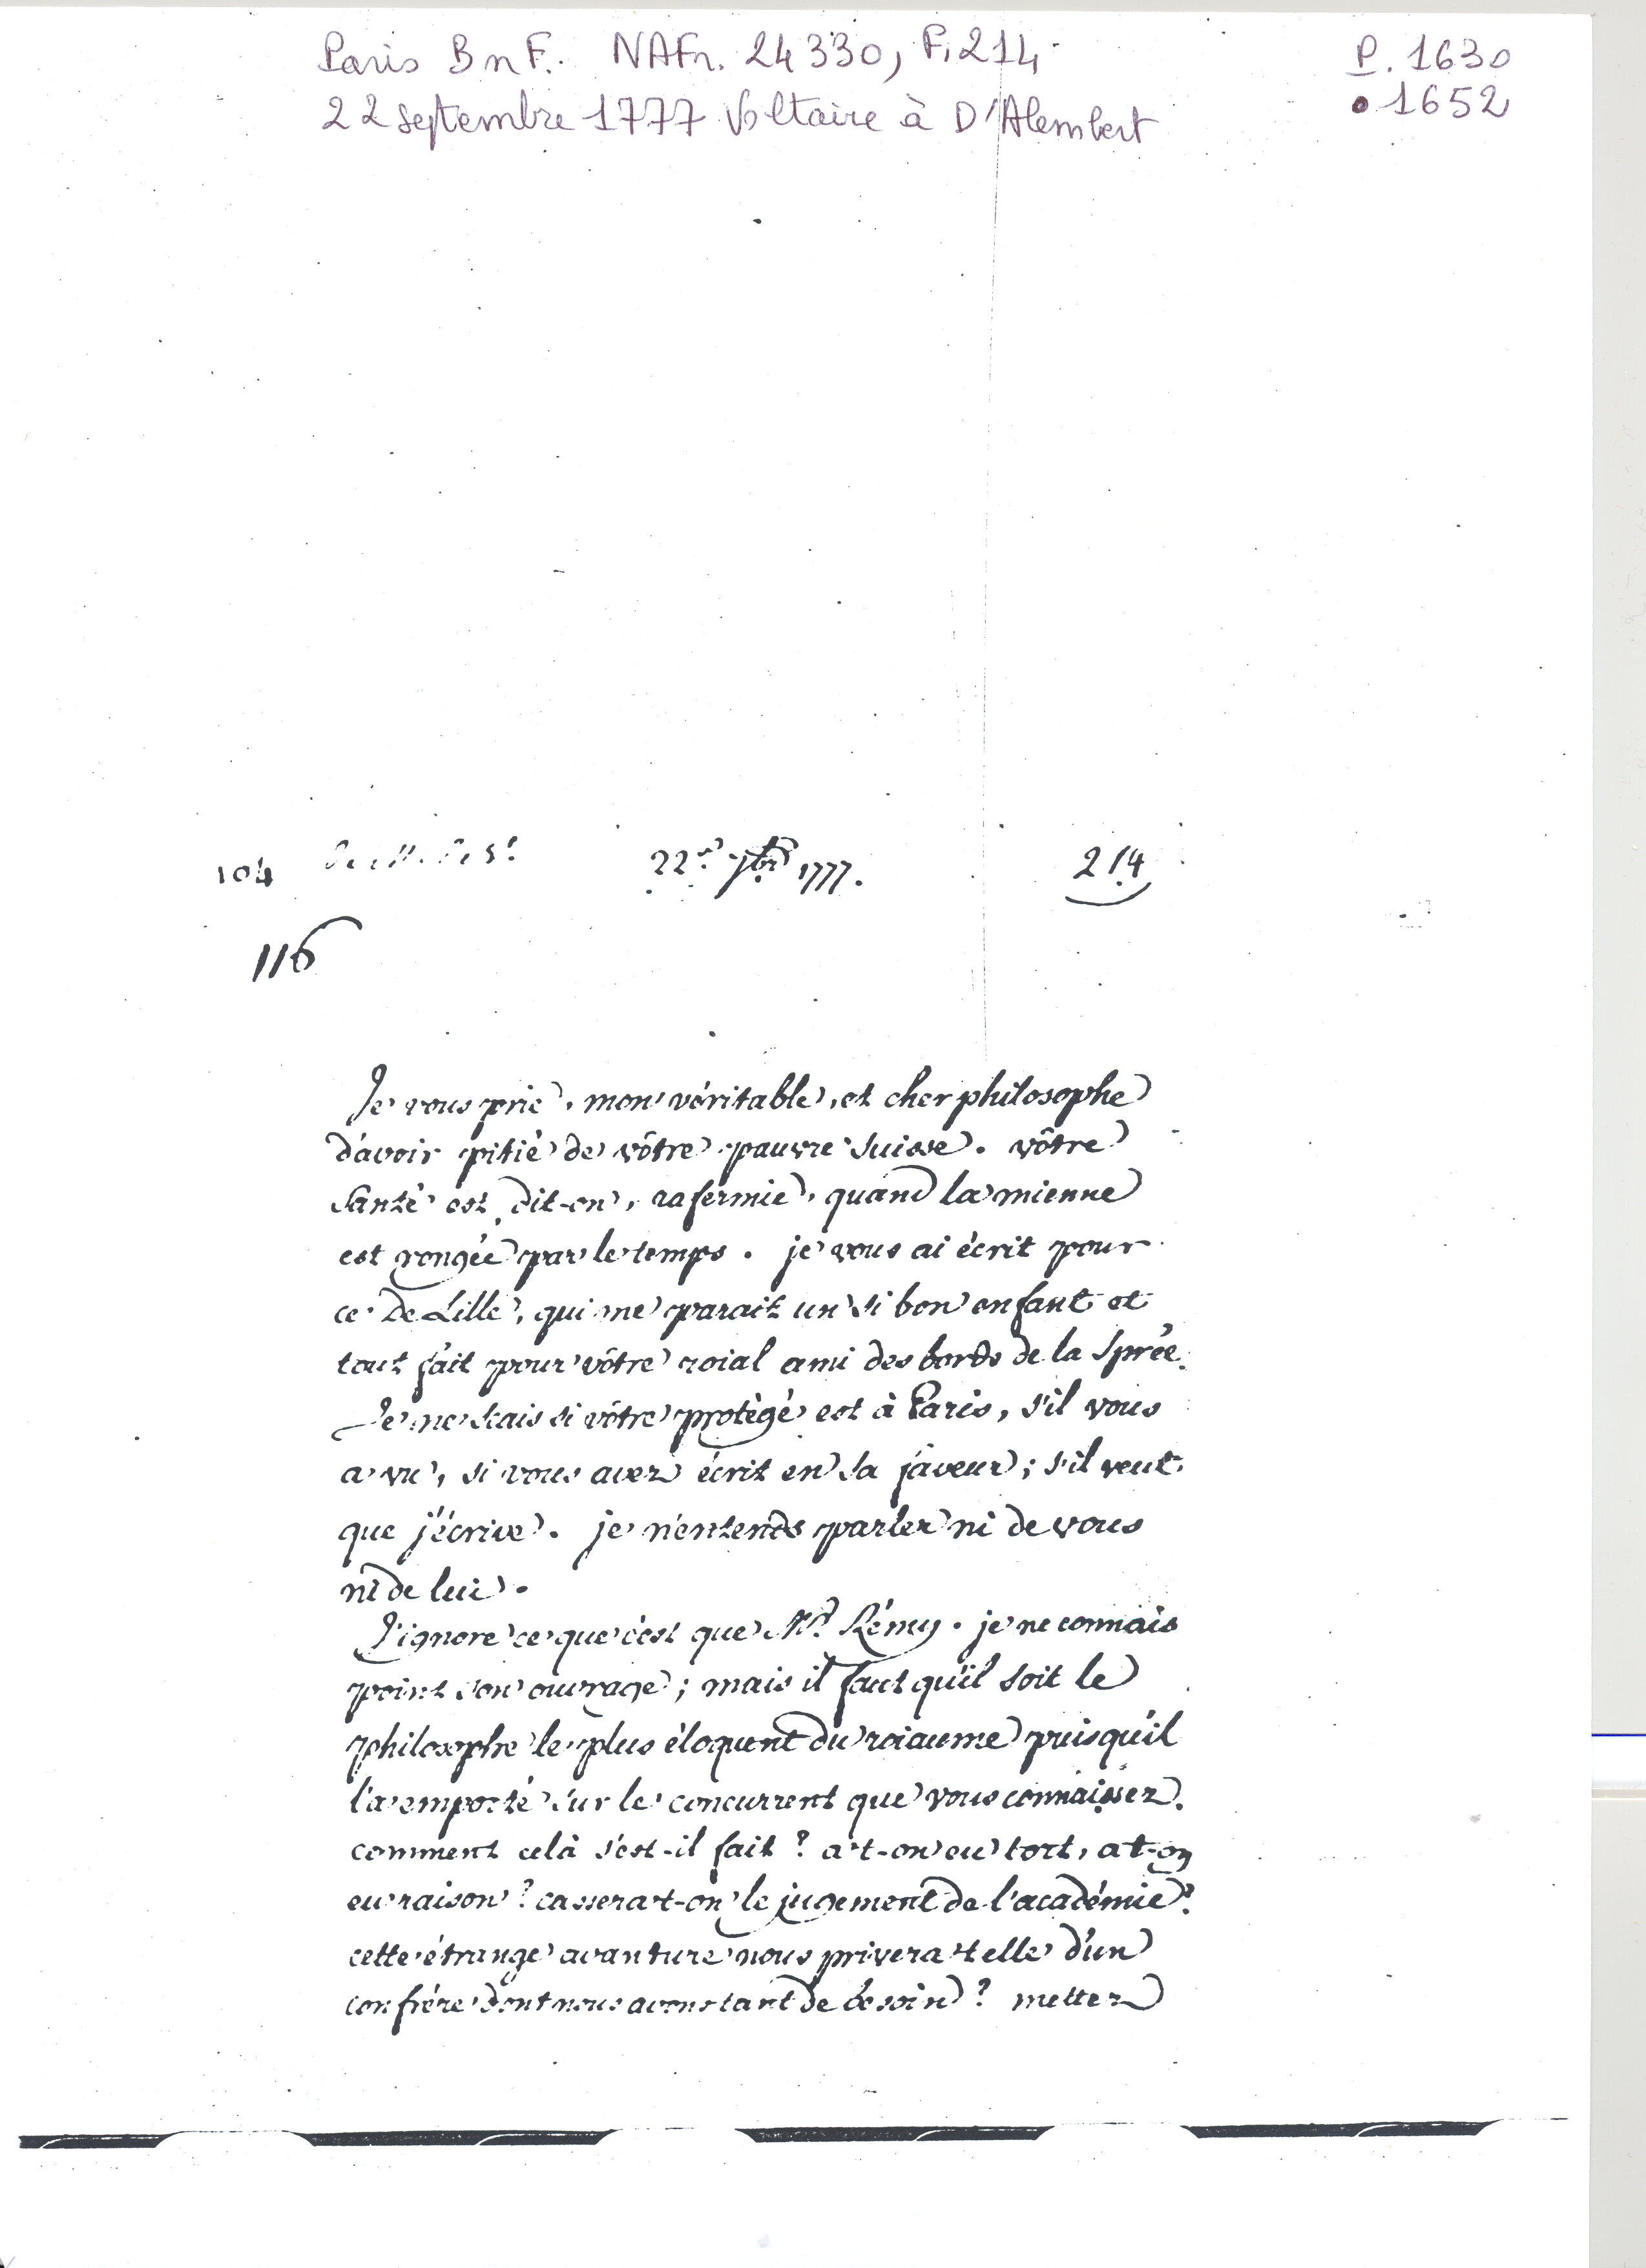 Paris BnF. NAFr. 24330, F. 214
P. 1630
22 septembre 1777 Voltaire à D'Alembert
1652
104
22e 7bre 1777.
214
116
Je vous prie, mon véritable, et cher philosophe
d'avoir pitié de vôtre pauvre Suisse. vôtre
Santé est, dit-on, rafermie, quand la mienne
est rongée par le temps. je vous ai écrit pour
ce De Lille, qui me parait un si bon enfant et
tout fait pour vôtre roial ami des bords de la Sprée.
Je ne scais si vôtre protègé est à Paris, s'il vous
a vu, si vous avez écrit en sa faveur; s'il veut
que j'écrive. je n'entends parler ni de vous
ni de lui.
J'ignore ce que c'est que Mr. Rémy. je ne connais
point son ouvrage; mais il faut qu'il soit le
philosophe le plus éloquent du roiaume puisqu'il
l'a emporté sur le concurrent que vous connaissez.
comment celà s'est-il fait? a-t-on eu tort, a t-on
eu raison? cassera t-on le jugement de l'académie?
cette étrange avanture nous privera t elle d'un
confrére dont nous avons tant de besoin? mettez